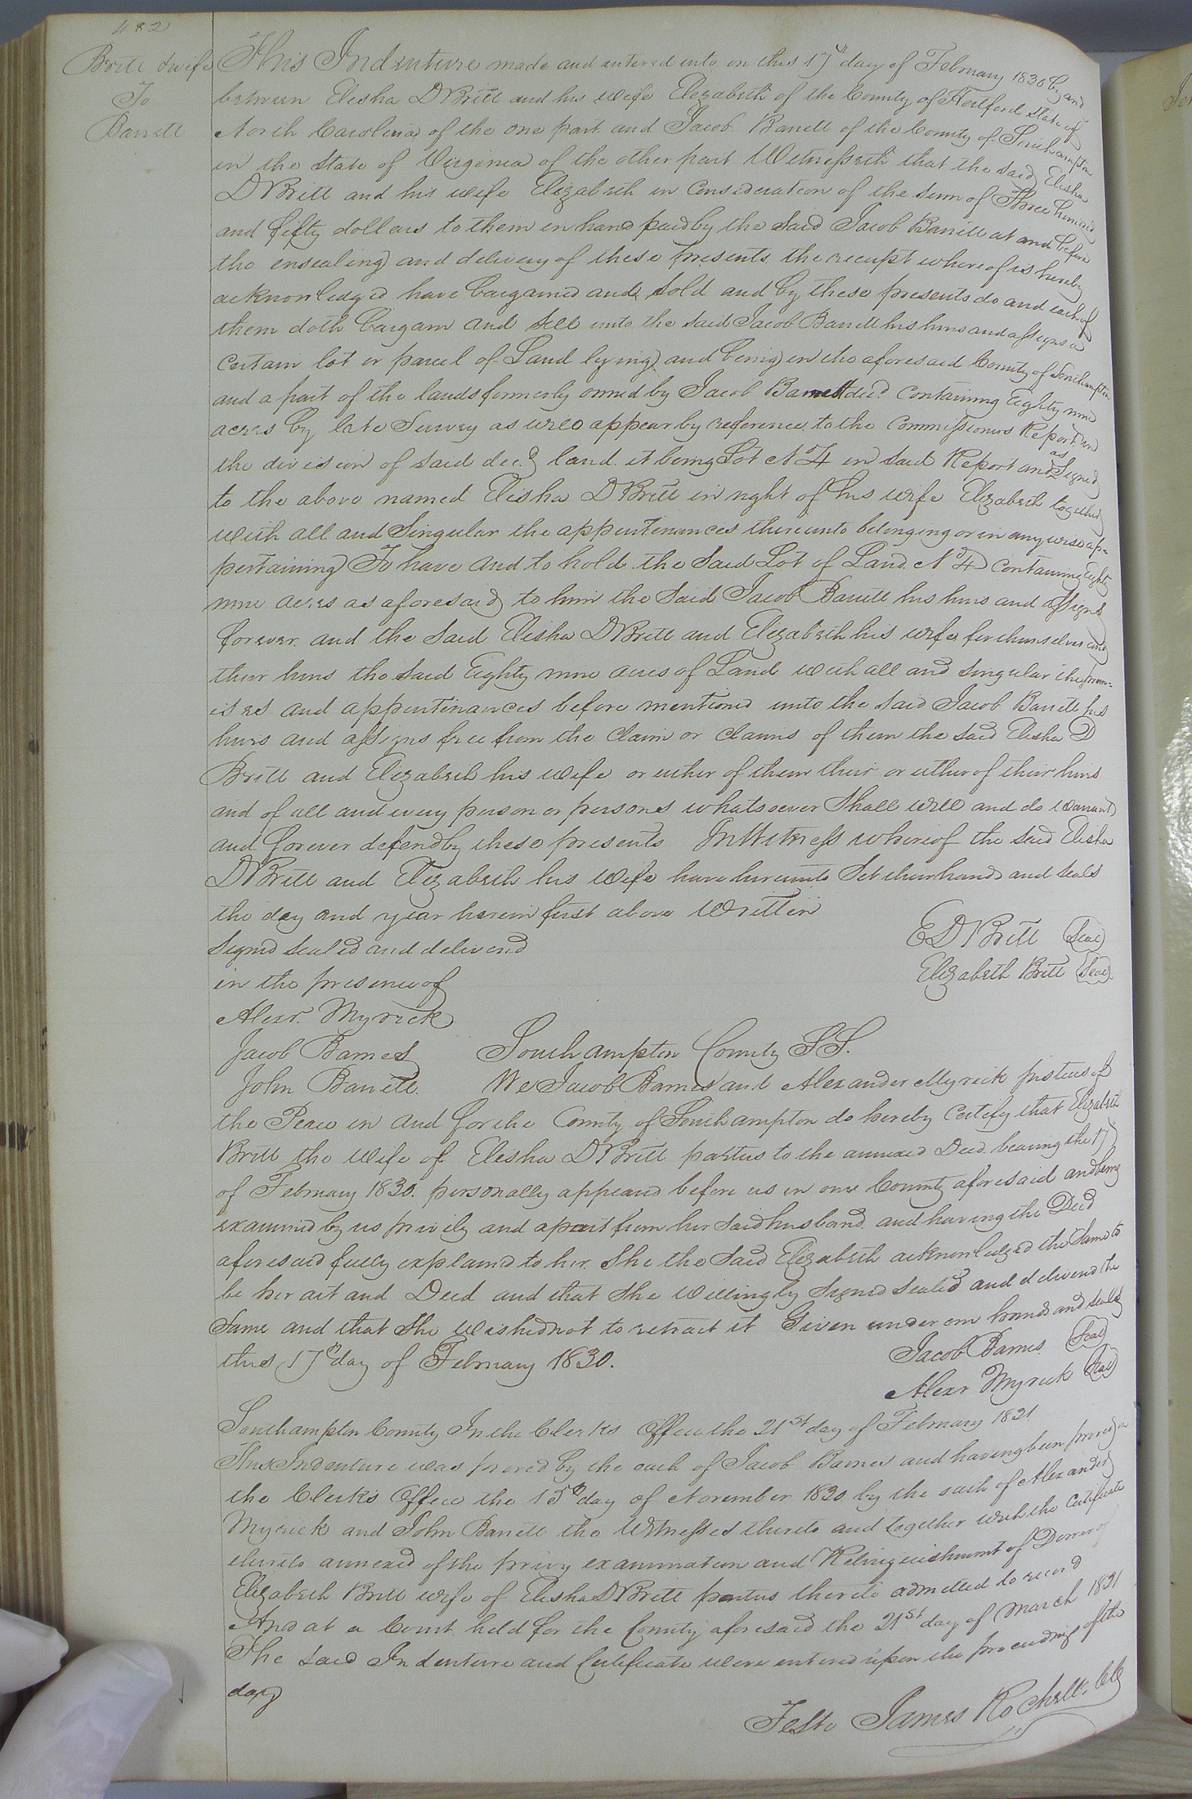 482
Britt & wife
To
Barrett
This Indenture made and entered into on this 17th day of February 1830 by and
between Elisha D Britt and his wife Elizabeth of the County of Hertford state of
North Carolina of the one part and Jacob Barrett of the County of Southampton
in the State of Virginia of the other part Witnesseth that the said Elisha
D Britt and his wife Elizabeth in Consideration of the sum of Three hundred
and fifty dollars to them in hand paid by the said Jacob Barrett at and before
the ensealing and delivery of these presents the receipt whereof is hereby
acknowledged have bargained and sold and by these presents do and each of
them doth bargain and sell unto the said Jacob Barrett his heirs and assigns a
certain lot or parcel of Land lying and being in the aforesaid County of Southampton
and a part of the lands formerly owned by Jacob Barrett decd. containing Eighty nine
acres by late Survey as will appear by reference to the Commissioners Report on
the division of said decd. land it being Lot No 4 in said Report and as signed
to the above named Elisha D Britt in right of his wife Elizabeth together
with all and Singular the appurtenances thereunto belonging or in any wise ap-
pertaining To have and to hold the said Lot of Land No 4 containing Eighty
nine acres as aforesaid to him the said Jacob Barrett his heirs and assigns
forever. and the said Elisha D Britt and Elizabeth his wife for themselves and
their heirs the said Eighty nine acres of Land with all and singular the prem-
ises and appurtenances before mentioned unto the said Jacob Barrett his
heirs and assigns free from the claim or claims of them the said Elisha D
Britt and Elizabeth his wife or either of them their or either of their heirs
and of all and every person or persons whatsoever shall will and do warrant
and forever defend by these presents In Witness whereof the said Elisha
D Britt and Elizabeth his wife have hereunto set their hands and seals
the day and year herein first above written
Signed sealed and delivered
E D Britt (Seal)
in the presence of
Elizabeth Britt (Seal)
Alexr. Myrick
Jacob Barnes
Southampton County SS.
John Barrett
We Jacob Barnes and Alexander Myrick justices of
the Peace in and for the County of Southampton do hereby certify that Elizabeth
Britt the wife of Elisha D Britt parties to the annexed Deed bearing the 17
of February 1830. personally appeared before us in our County aforesaid and being
examined by us privily and apart from her said husband and having the Deed
aforesaid fully explained to her. She the said Elizabeth acknowledged the same to
be her act and Deed and that she willingly signed sealed and delivered the
same and that she wished not to retract it Given under our hands and seals
this 17th day of February 1830.
Jacob Barnes (Seal)
Alexr Myrick (Seal)
Southampton County In the Clerks Office the 21st day of February 1831
This Indenture was proved by the oath of Jacob Barnes and having been proved in
the Clerk's Office the 15th day of November 1830 by the oath of Alexander
Myrick and John Barrett the witnesses thereto and together with the Certificate
thereto annexed of the privy examination and Relinquishment of Dower of
Elizabeth Britt wife of Elisha D Britt parties thereto admitted to record
And at a Court held for the County aforesaid the 21st day of March 1831
The said Indenture and Certificate were entered upon the proceedings of the
day
Teste James Rochelle Clk